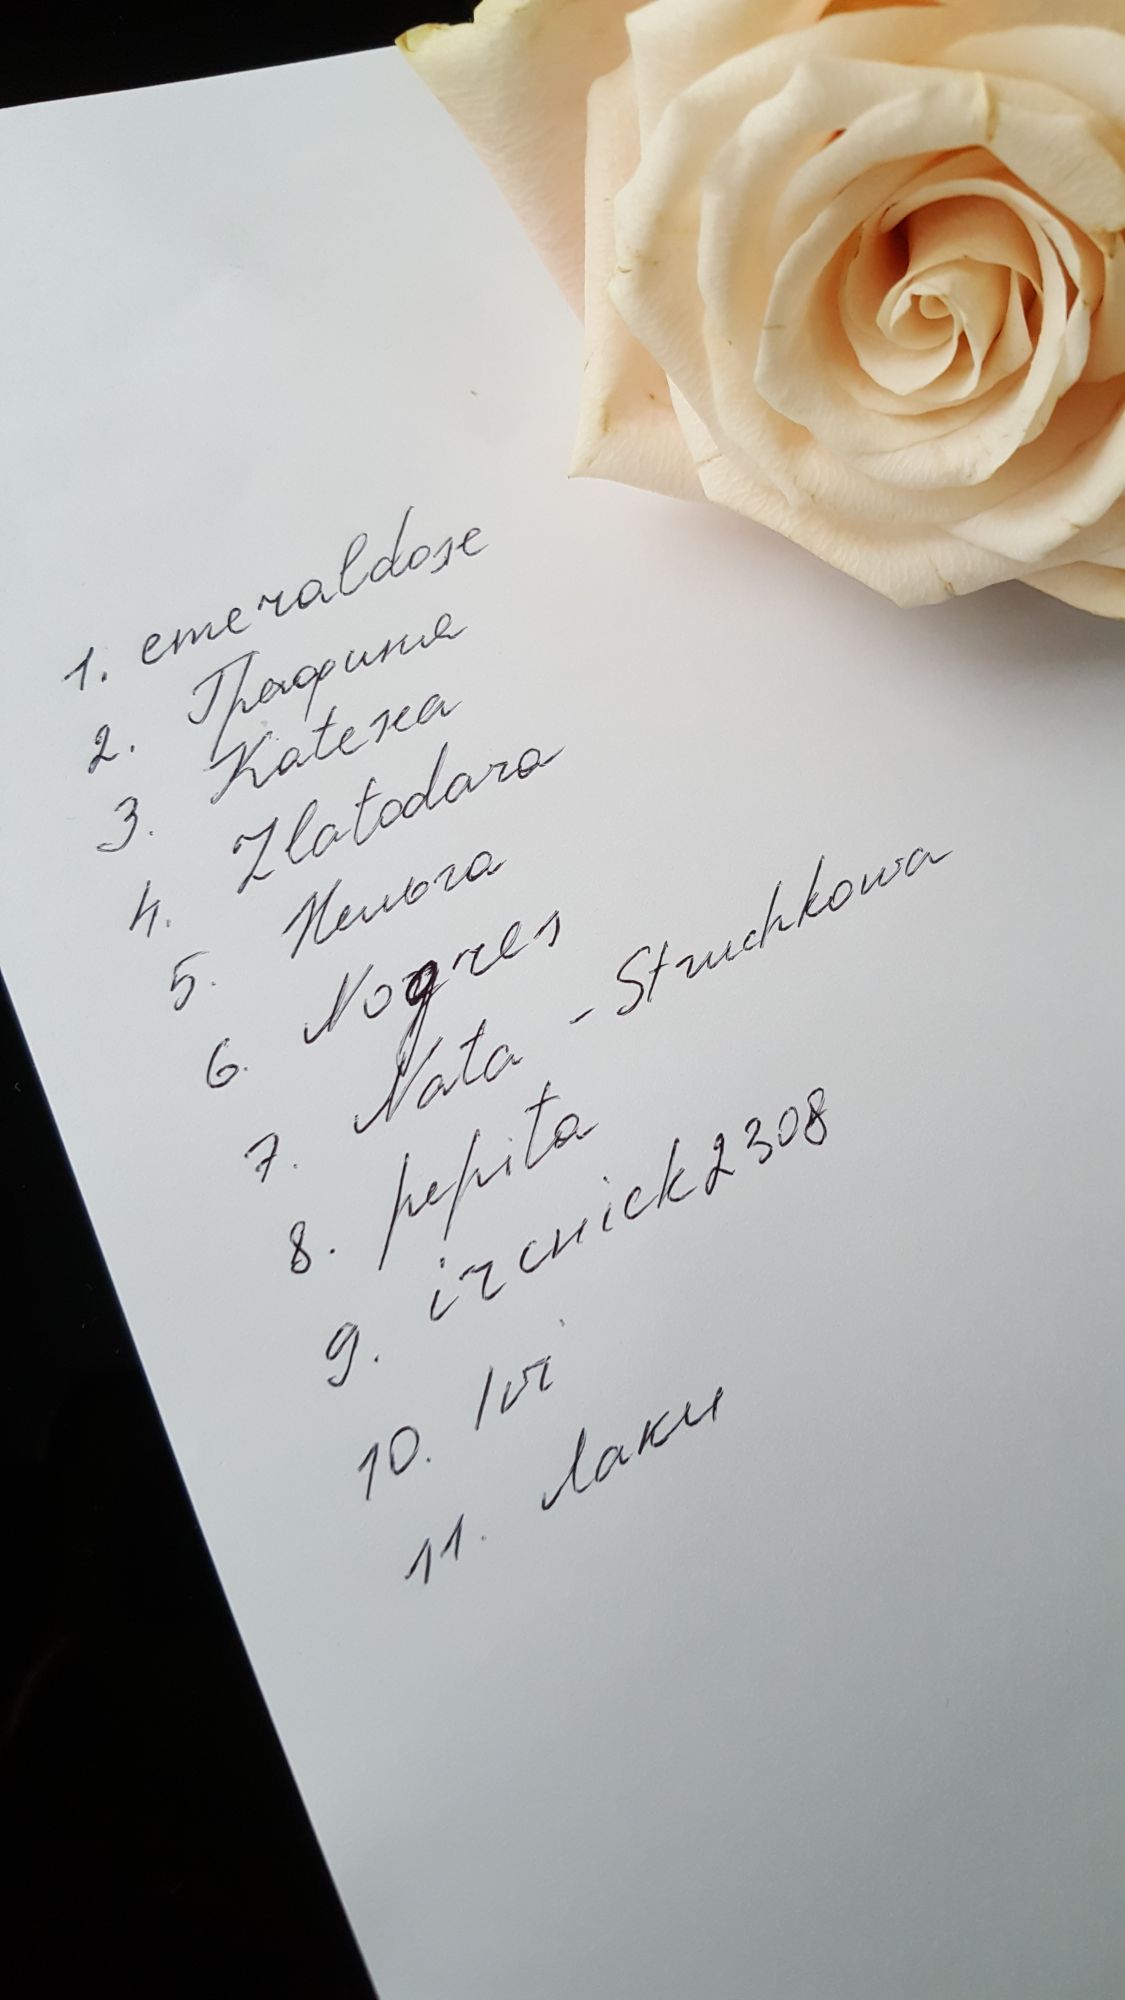 1. emeraldose
2. Графиня
3. Katexa
4. Zlatodara
5.
6. Nogres
7. Nata - Struchkowa
8. pepita
9. irenick2308
10. Ivi
11. Лаки